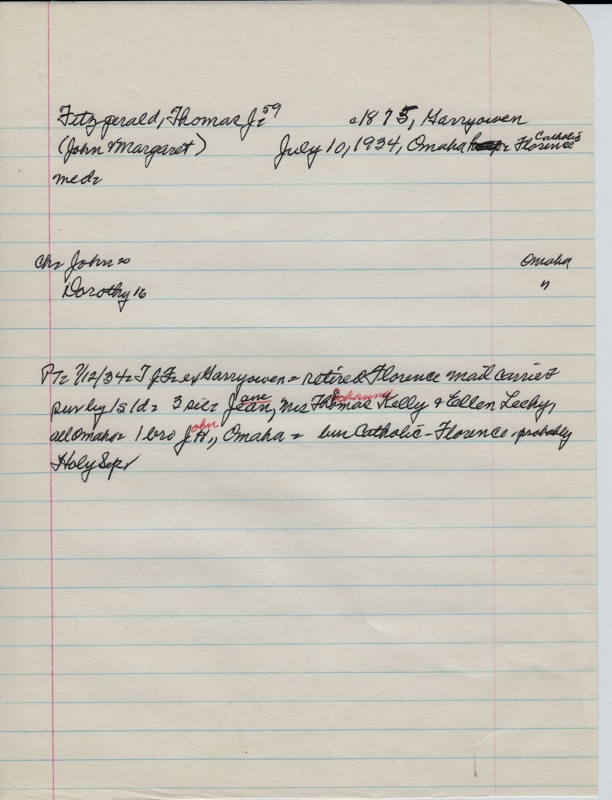 Fitzgerald, Thomas J= 59 c1875, Garryowen
(John & Margaret) July 10, 1934, Omaha Catholic Florence
med=
Ch= John 20 Omaha
Dorothy 16 "
PT= 7/12/34= T J F= ex Garryowen= retired Florence mail carrier=
sur by 1s 1d= 3 sis= Jean, ane Mrs Thomas Johanna Kelly & Ellen Leehy,
all Omaha= 1 bro J.H., ohn Omaha = bur Catholic - Florence - probably
Holy Sepr